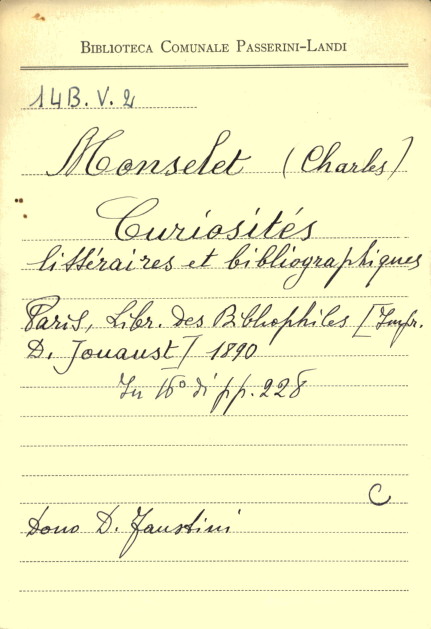 BIBLIOTECA COMUNALE PASSERINI-LANDI
14B. V. 2
Monselet (Charles)
Curiosités
littéraires et bibliographiques
Paris, Libr. des Bibliophiles [Impr.
D. Jouaust] 1890
In 16° di pp. 228
C
Dono D. Faustini